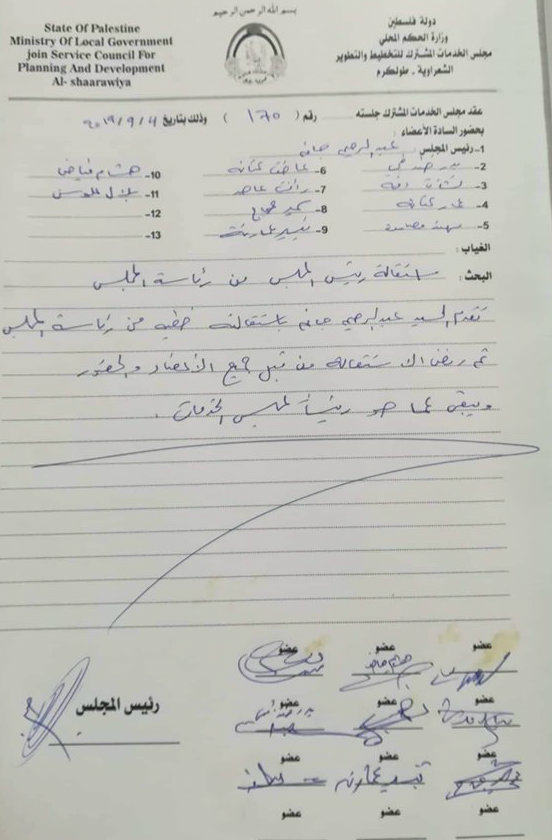 بسم الله الرحمن الرحيم
State Of Palestine
Ministry Of Local Government
join Service Council For
Planning And Development
Al- shaarawiya
دولة فلسطين
وزارة الحكم المحلي
مجلس الخدمات المشترك للتخطيط والتطوير
الشعراوية - طولكرم
عقد مجلس الخدمات المشترك جلسته رقم ( ١٧٥ ) وذلك بتاريخ ٢٠١٩/٩/٤
بحضور السادة الأعضاء :
1- رئيس المجلس عبد الرحيم
2-
3-
4- عمار كتانة
5- مهند
6- عاهد كتانة
7- رأفت
8- سمير
9- تيسير عمارنة
10- هشام فياض
11- بلال
12-
13-
الغياب :
البحث : استقالة رئيس المجلس من رئاسة المجلس
تقدم السيد عبد الرحيم باستقالته خطية من رئاسة المجلس
تم رفض الاستقالة من قبل جميع الأعضاء والحضور
ويبقى كما هو رئيساً لمجلس الخدمات .
عضو عضو عضو
رئيس المجلس
عضو عضو عضو
عضو عضو عضو
تيسير عمارنة
عضو عضو عضو